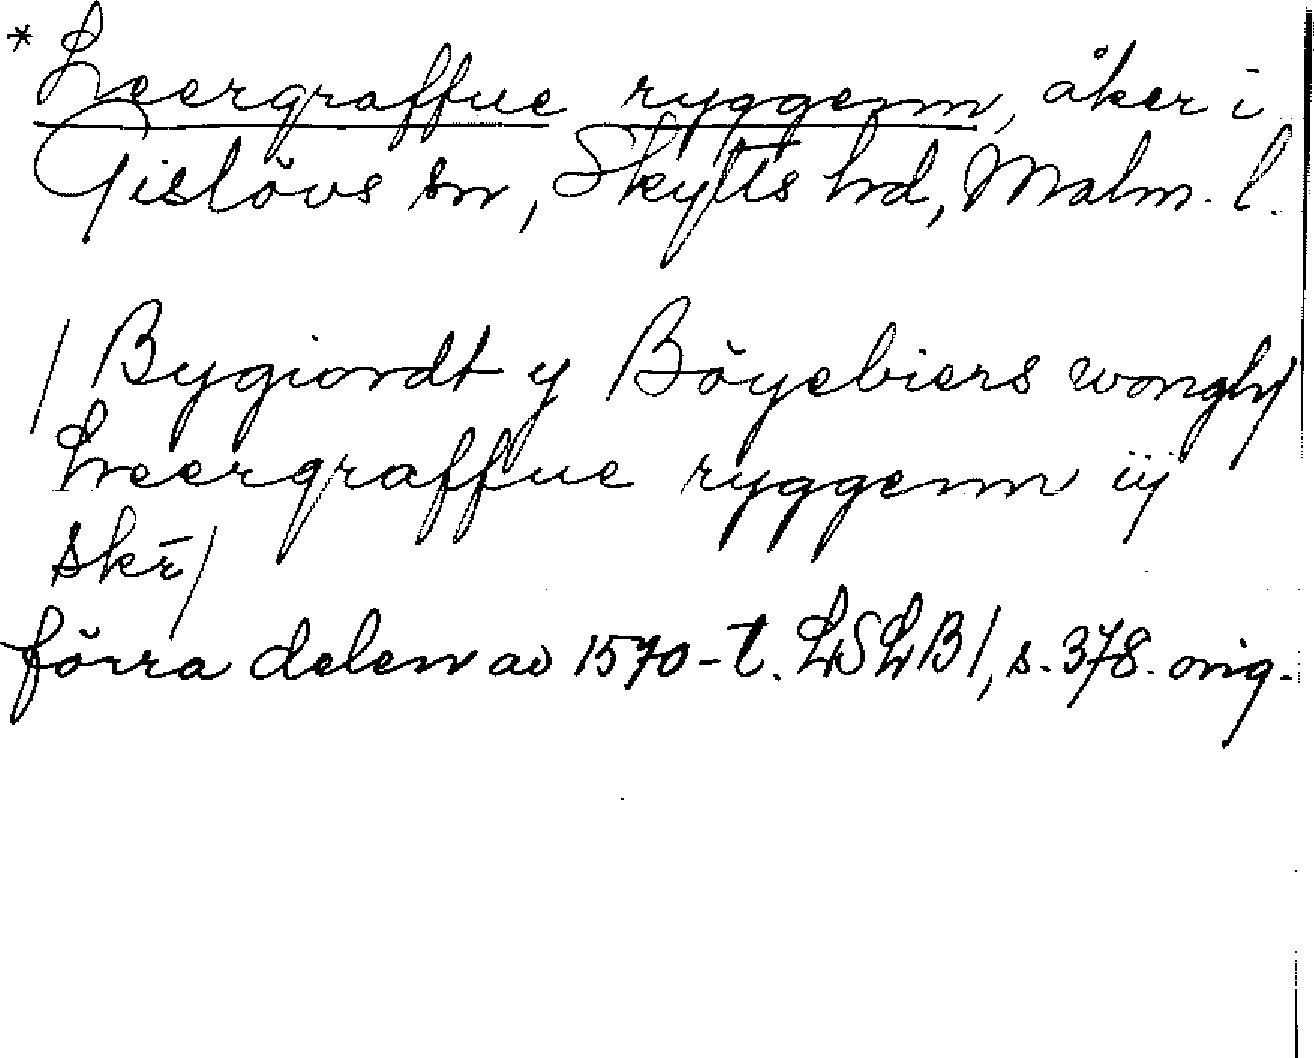 * Leergraffue ryggenn, åker i
Gislövs sn, Skytts hd, Malm. l.
/ Bygiordt y Böyebiers wongh/
Leergraffue ryggenn iij
skr̄/
förra delen av 1570-t. LSLB 1, s. 378. orig.